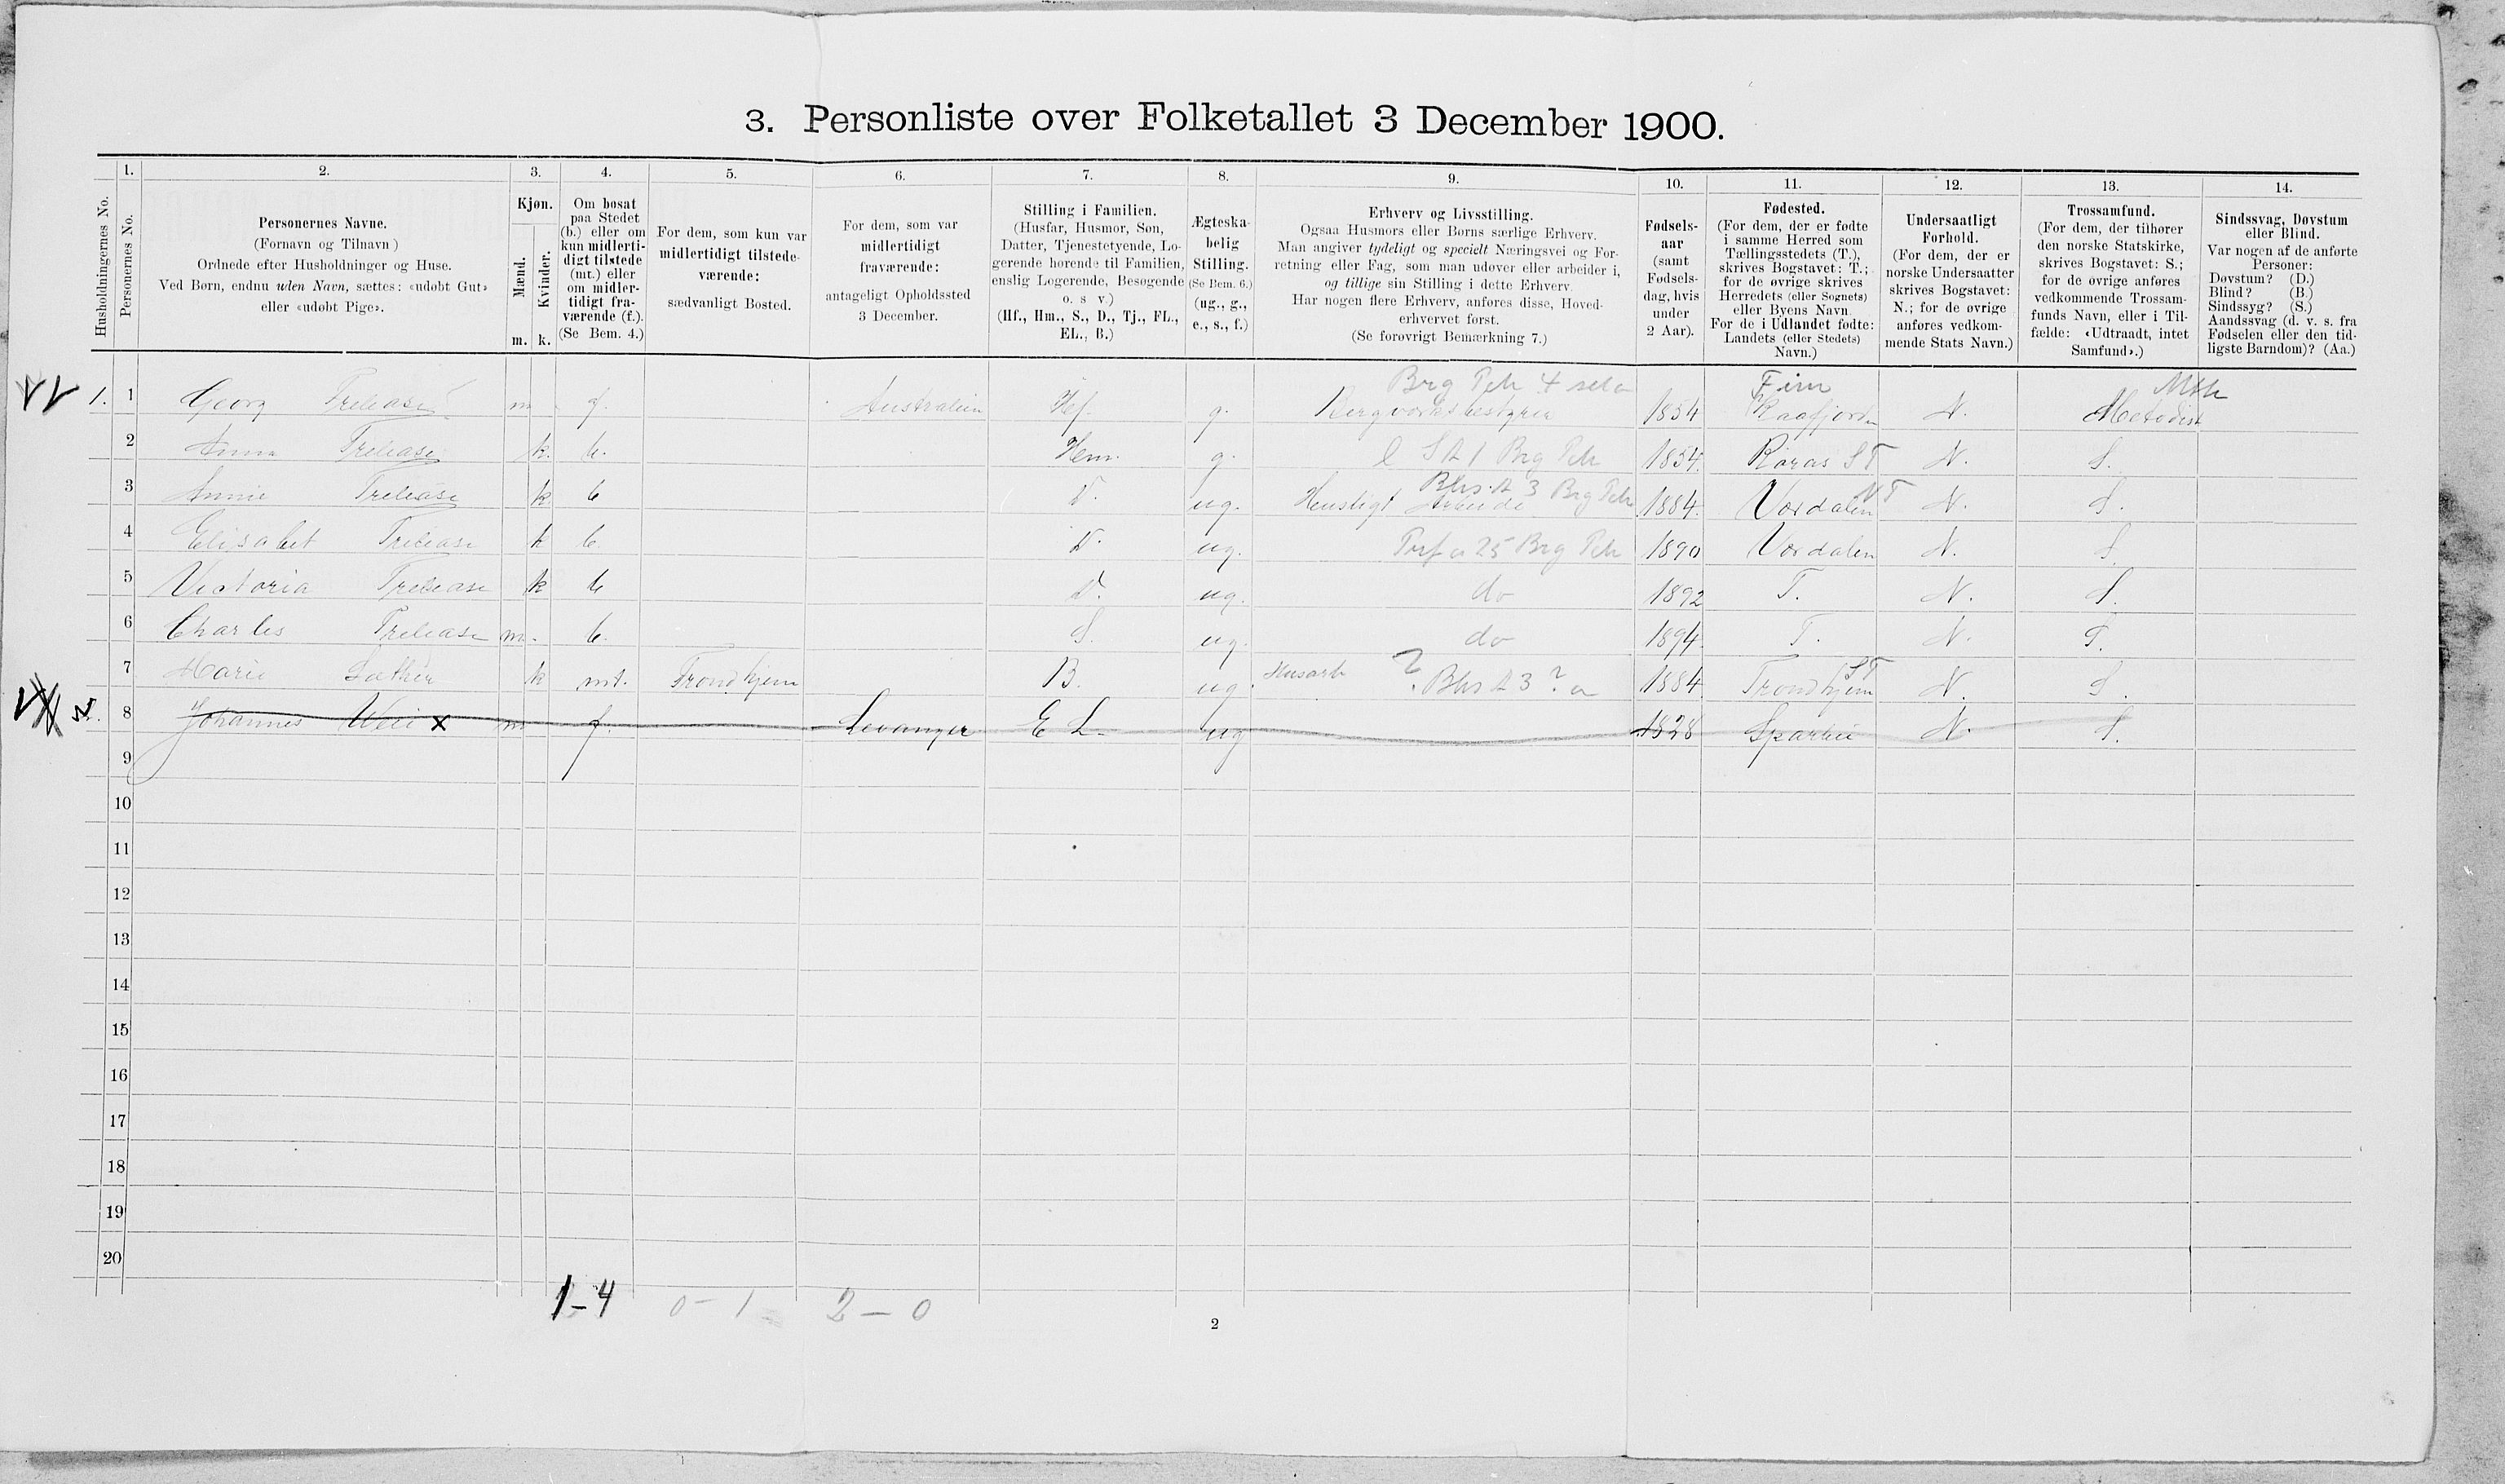 3. Personliste over Folketallet 3 December 1900.
Husholdningernes No.
1. Personernes No.
2. Personernes Navne.
(Fornavn og Tilnavn)
Ordnede efter Husholdninger og Huse.
Ved Børn, endnu uden Navn, sættes: «udøbt Gut»
eller «udøbt Pige».
3. Kjøn.
Mænd. Kvinder.
m. k.
4. Om bosat
paa Stedet
(b.) eller om
kun midlerti-
digt tilstede
(mt.) eller
om midler-
tidigt fra-
værende (f.).
(Se Bem. 4.)
5. For dem, som kun var
midlertidigt tilstede-
værende:
sædvanligt Bosted.
6. For dem, som var
midlertidigt
fraværende:
antageligt Opholdssted
3 December.
7. Stilling i Familien.
(Husfar, Husmor, Søn,
Datter, Tjenestetyende, Lo-
gerende hørende til Familien,
enslig Logerende, Besøgende
o. s v.)
(Hf., Hm., S., D., Tj., FL.,
EL., B.)
8. Ægteska-
belig
Stilling.
(Se Bem. 6.)
(ug., g.,
e., s., f.)
9. Erhverv og Livsstilling.
Ogsaa Husmors eller Børns særlige Erhverv.
Man angiver tydeligt og specielt Næringsvei og For-
retning eller Fag, som man udøver eller arbeider i,
og tillige sin Stilling i dette Erhverv.
Har nogen flere Erhverv, anføres disse, Hoved-
erhvervet først.
(Se forøvrigt Bemærkning 7.)
10. Fødsels-
aar
(samt
Fødsels-
dag, hvis
under
2 Aar).
11. Fødested.
(For dem, der er fødte
i samme Herred som
Tællingsstedets (T.),
skrives Bogstavet: T.;
for de øvrige skrives
Herredets (eller Sognets)
eller Byens Navn.
For de i Udlandet fødte:
Landets (eller Stedets)
Navn.)
12. Undersaatligt
Forhold.
(For dem, der er
norske Undersaatter
skrives Bogstavet:
N.; for de øvrige
anføres vedkom-
mende Stats Navn.)
13. Trossamfund.
(For dem, der tilhører
den norske Statskirke,
skrives Bogstavet: S.;
for de øvrige anføres
vedkommende Trossam-
funds Navn, eller i Til-
fælde: «Udtraadt, intet
Samfund».)
14. Sindssvag, Døvstum
eller Blind.
Var nogen af de anførte
Personer:
Døvstum? (D.)
Blind? (B.)
Sindssyg? (S.)
Aandssvag (d. v. s. fra
Fødselen eller den tid-
ligste Barndom)? (Aa.)
Fin Mth
1. 1 Georg Trelease m f. Australien Hf. g. Bergværksbestyrer 1854 Kaafjorden N. Metodist
2 Anna Trelease k. b. Hm. g. 1854. Røraas ST N. S.
3 Annie Trelease k b D. ug. Husligt Arbeide 1884. Værdalen NT N. S.
4 Elisabet Trelease k b D. ug. 1890 Værdalen N. S.
5 Victoria Trelease k b D. ug. do 1892 T. N. S.
6 Charles Trelease m. b. S. ug. do 1894. T. N. S.
7 Marie k mt. Trondhjem B. ug. Husarb 1884 Trondhjem ST N. S.
8 Johannes x m f. Levanger E L. ug 1828 Sparbu N. S.
9
10
11
12
13
14
15
16
17
18
19
20
1-4 0-1 2-0
2